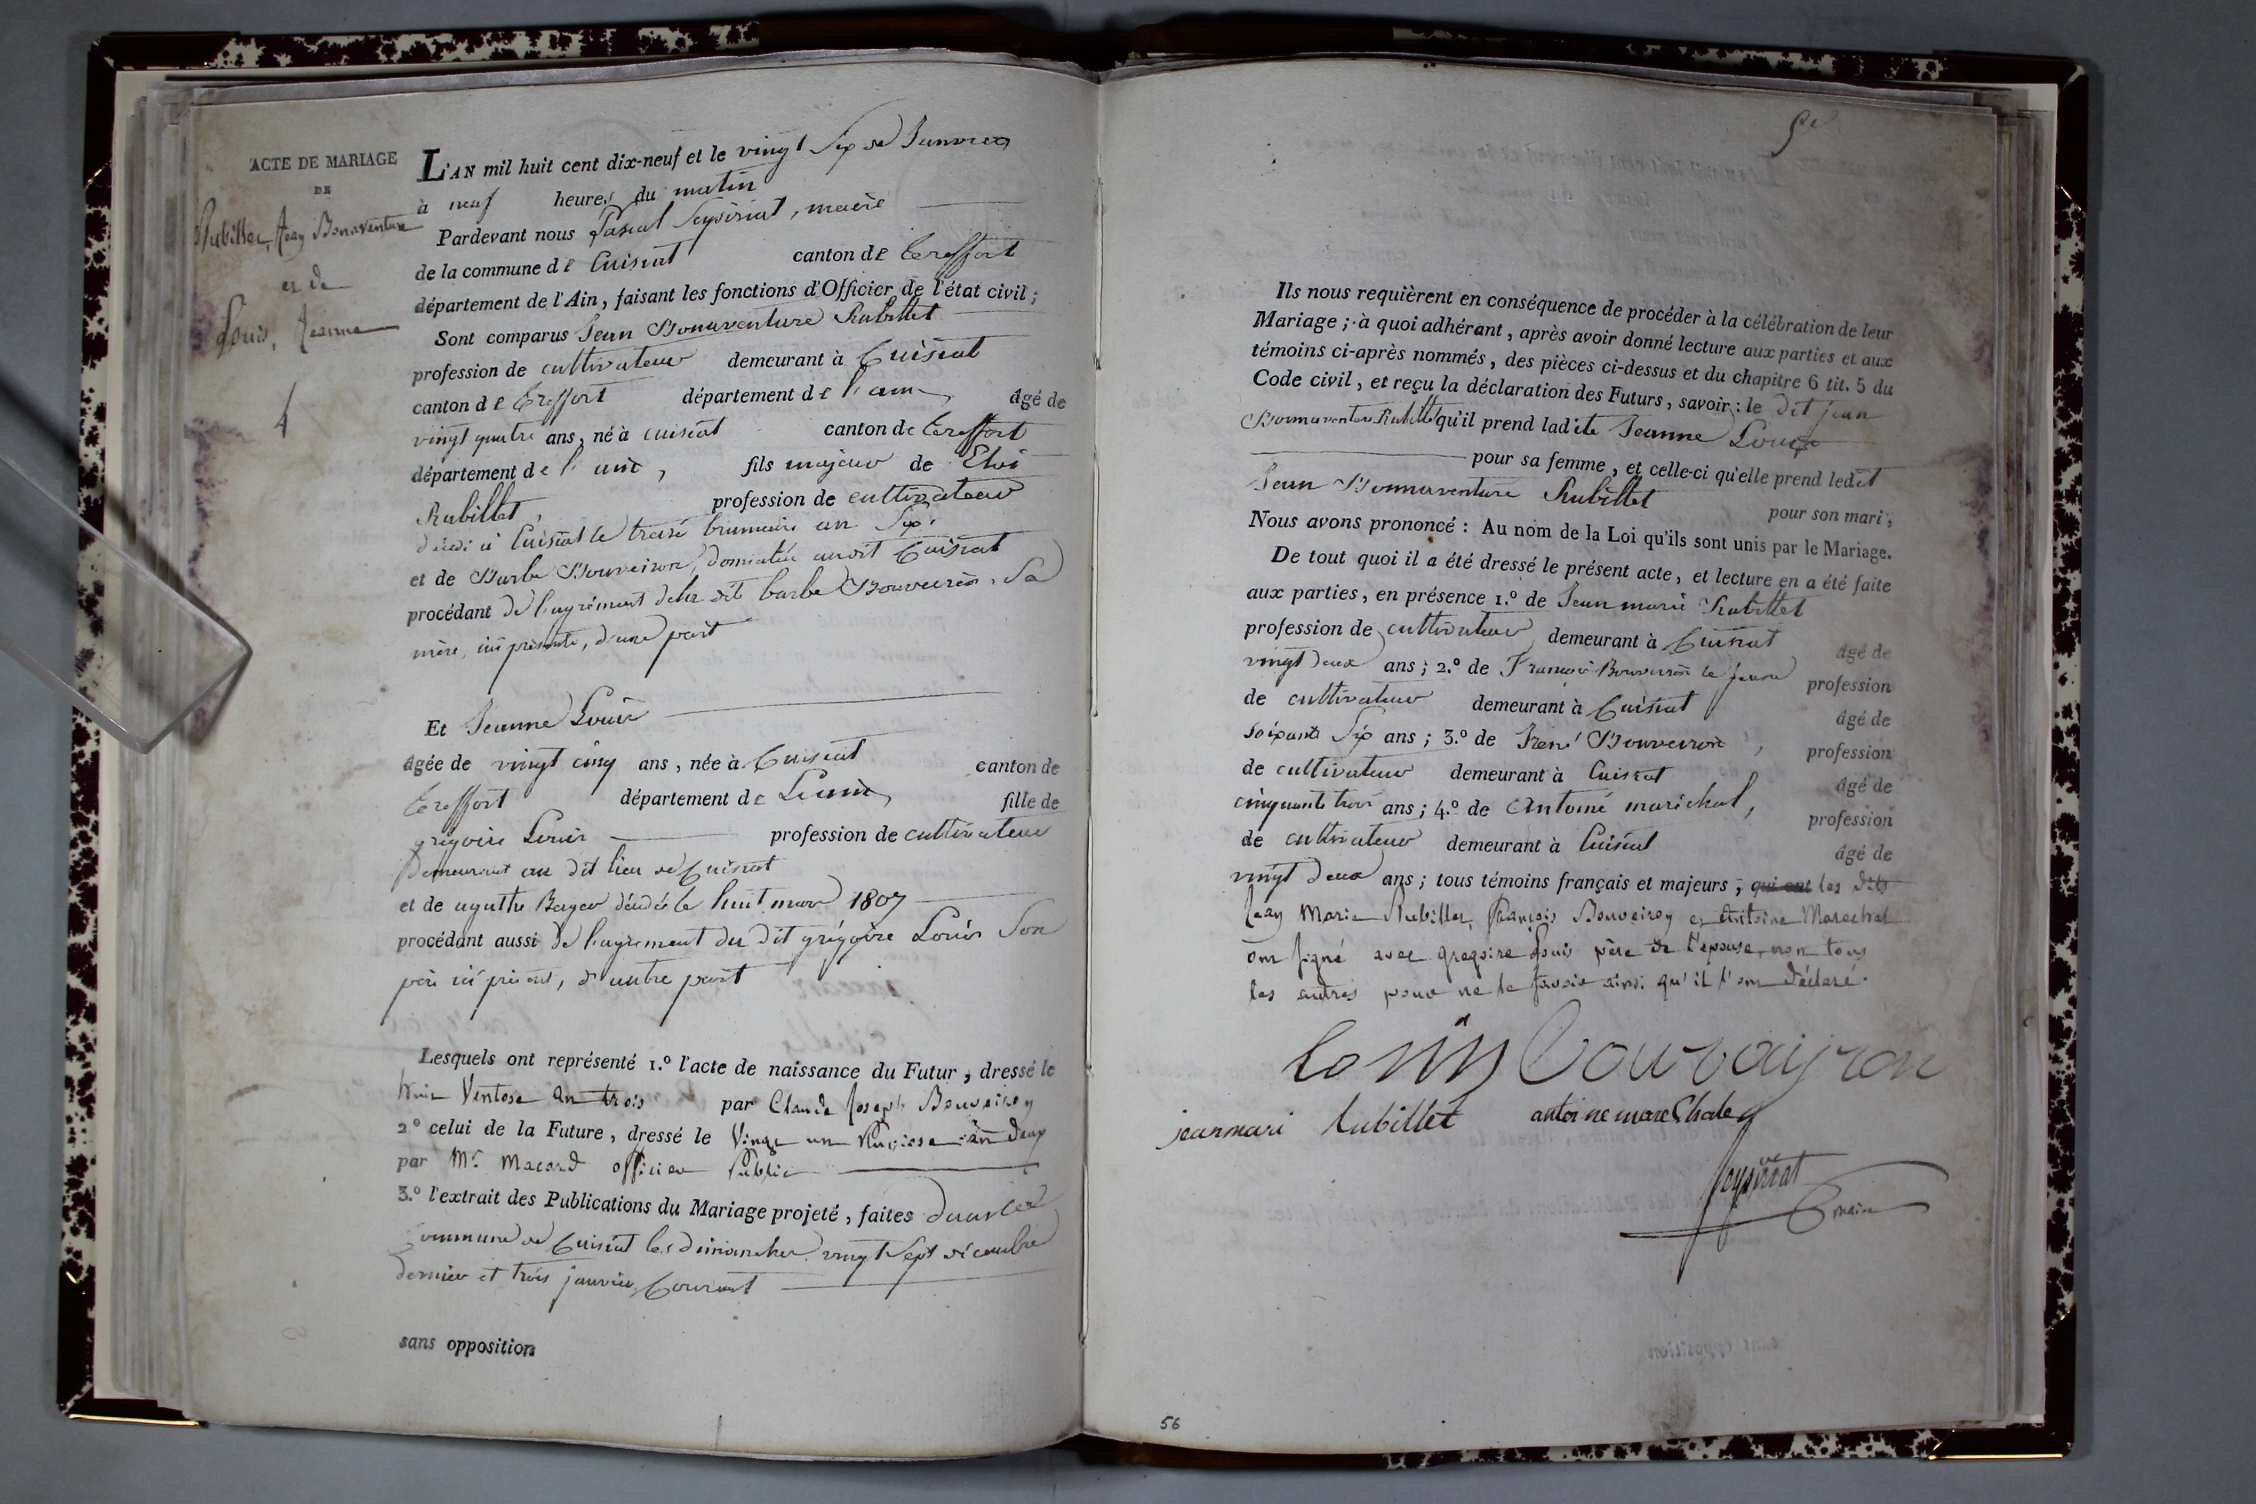 ACTE DE MARIAGE
DE
Rubillet, Jean Bonaventure
et de
Louis, Jeanne
4
L'AN mil huit cent dix-neuf et le vingt six de Janvier
à neuf heures du matin
Pardevant nous Pascal Seysiriat, maire
de la commune de Cuisiat canton de treffort
département de l'Ain, faisant les fonctions d'Officier de l'état civil;
Sont comparus Jean Bonaventure Rubillet
profession de cultivateur demeurant à Cuisiat
canton de treffort département de l'ain, âgé de
vingt quatre ans, né à cuisiat canton de treffort
département de l'ain, fils majeur de Eloi
Rubillet, profession de cultivateur
décédé à Cuisiat le treize brumaire an Six.
et de Barbe Bouveiron, domiciliée audit Cuisiat
procédant de l'agrément de la dite barbe Bouveiron, Sa
mère, ici présente, d'une part
Et Jeanne Louis
âgée de vingt cinq ans, née à Cuisiat canton de
treffort département de L'ain, fille de
grégoire Louis profession de cultivateur
Demeurant au dit lieu de Cuisiat
et de agathe Berger décédée le huit mars 1807
procédant aussi de l'agrément du dit grégoire Louis Son
père ici présent, d'autre part
Lesquels ont représenté 1.º l'acte de naissance du Futur, dressé le
huit Ventose an trois par Claude Joseph Bouveiron
2º celui de la Future, dressé le Vingt un Pluviose an deux
par Mr. Macard officier Public
3.º l'extrait des Publications du Mariage projeté, faites dans cette
commune de Cuisiat les dimanches vingt Sept décembre
dernier et trois janvier Courant
sans opposition
Ils nous requièrent en conséquence de procéder à la célébration de leur
Mariage; à quoi adhérant, après avoir donné lecture aux parties et aux
témoins ci-après nommés, des pièces ci-dessus et du chapitre 6 tit. 5 du
Code civil, et reçu la déclaration des Futurs, savoir: le dit jean
Bonnaventure Rubillet qu'il prend ladite Jeanne Louis
pour sa femme, et celle-ci qu'elle prend ledit
Jean Bonnaventure Rubillet pour son mari;
Nous avons prononcé: Au nom de la Loi qu'ils sont unis par le Mariage.
De tout quoi il a été dressé le présent acte, et lecture en a été faite
aux parties, en présence 1.º de Jean marie Rubillet
profession de cultivateur demeurant à Cuisiat âgé de
vingt deux ans; 2.º de François Bouveiron le jeune profession
de cultivateur demeurant à Cuisiat âgé de
soixante Six ans; 3.º de René Bouveiron, profession
de cultivateur demeurant à Cuisiat âgé de
cinquante trois ans; 4.º de Antoine marichal, profession
de cultivateur demeurant à Cuisiat âgé de
vingt deux ans; tous témoins français et majeurs, qui ont les dits
Jean Marie Rubillet, François Bouveiron et Antoine Marechal
ont signé avec gregoire Louis père de l'epouse, non tous
les autres pour ne le savoir ainsi qu'il l'ont déclaré.
louis bouvairon
jeanmari Rubillet antoine marechale
Seysiriat
maire
56